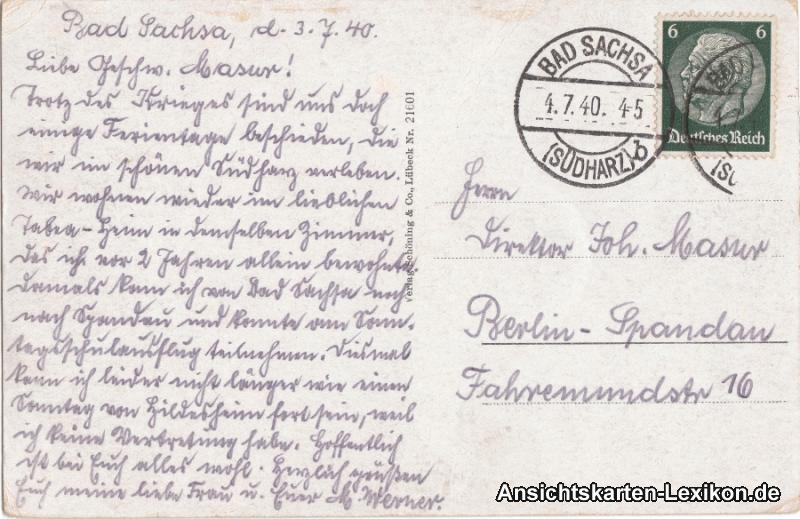 Bad Sachsa, d. 3.7.40.
Liebe Geschw. Masur!
Trotz des Krieges sind uns doch
einige Ferientage beschieden, die
wir im schönen Südharz verleben.
Wir wohnen wieder im lieblichen
Tabea-Heim in demselben Zimmer,
das ich vor 2 Jahren allein bewohnte.
Damals kam ich von Bad Sachsa noch
nach Spandau und konnte am Sonn-
tagsschulausflug teilnehmen. Diesmal
kann ich leider nicht länger wie einen
Sonntag von Hildesheim fort sein, weil
ich keine Vertretung habe. Hoffentlich
ist bei Euch alles wohl. Herzlich grüßen
Euch meine liebe Frau u. Euer M. Werner.
Verlag Schöning & Co., Lübeck Nr. 21601
BAD SACHSA
4.7.40. 4-5
(SÜDHARZ) b
6 6
Deutsches Reich
Herrn
Direktor Joh. Masur
Berlin-Spandau
Fahremundstr 16
Ansichtskarten-Lexikon.de